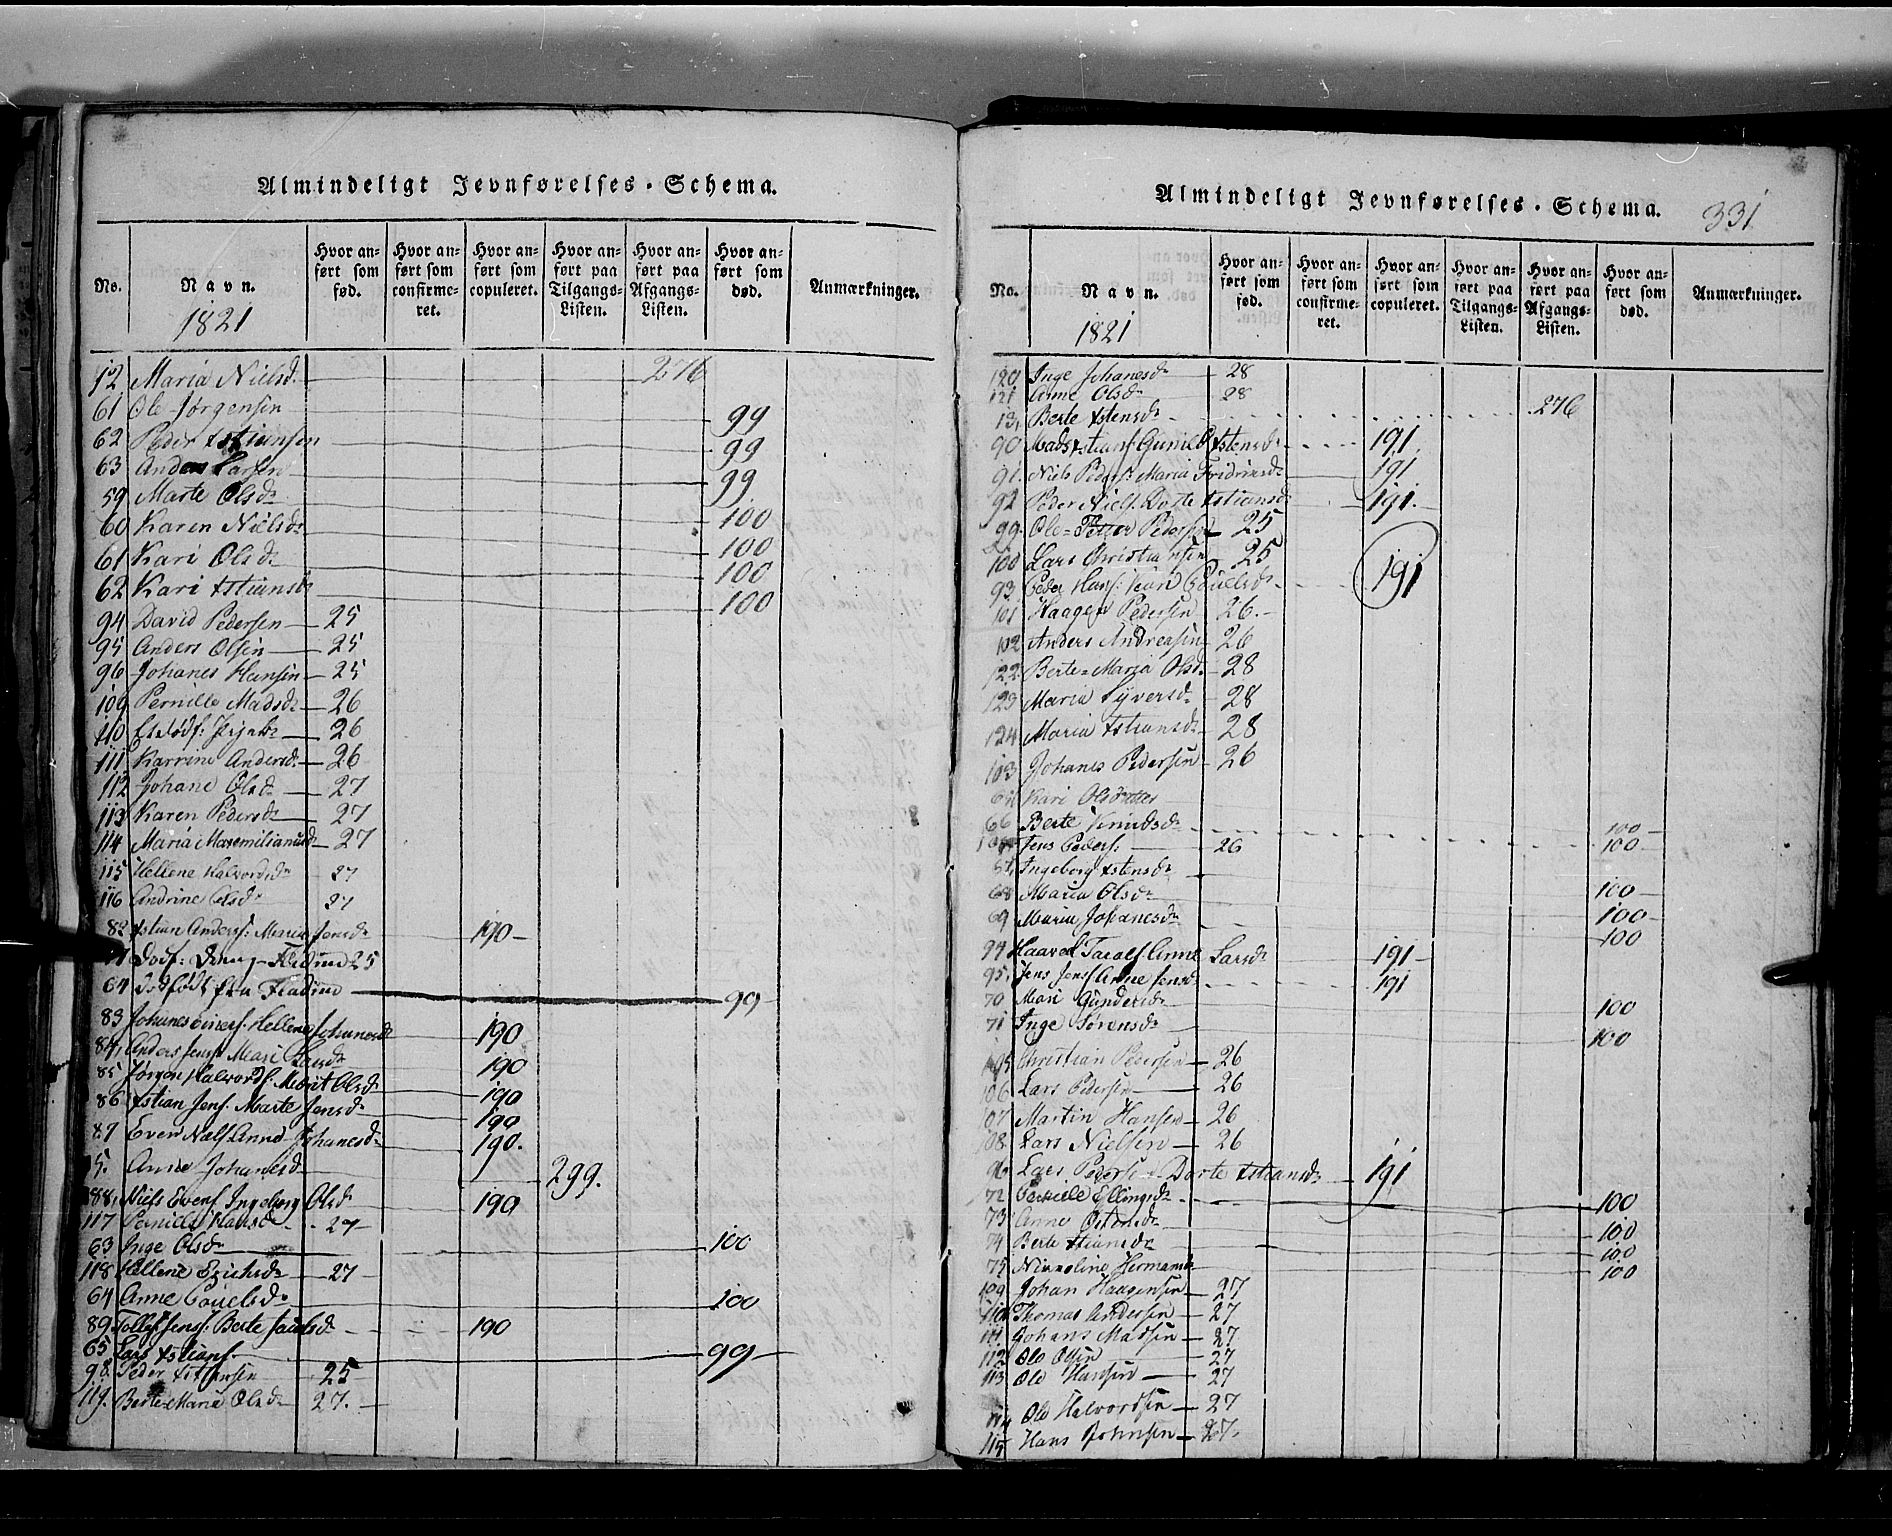 Almindeligt Jevnførelses-Schema.
No. Navn. 1821 Hvor anført som fød. Hvor anført som confirmeret. Hvor anført som copuleret. Hvor anført paa Tilgangs-Listen. Hvor anført paa Afgangs-Listen. Hvor anført som død. Anmærkninger.
12 Maria Nielsd. 276
61 Ole Jørgensen 99
62 Peder Xstiansen 99
63 Anders Larsen 99
59 Marte Olsdr 100
60 Karen Nielsdr 100
61 Kari Olsdr 100
62 Kari Xstiansdr 100
94 David Pedersen 25
95 Anders Olsen 25
96 Johanes Hansen 25
109 Pernille Madsdr 26
110 26
111 Karrine Andersdr 26
112 Johane Olsdr 27
113 Karen Pedersdr 27
114 Maria Maxemilianusdr 27
115 Hellene Halvordsdr 27
116 Andrine Olsdr 27
82 Xstian Andersf: Maria Jensdr 190
25
64 Dødfødt fra 99
83 Johanes Hellene Johanesdr 190
84, Anders Jensf: Mari 190
85 Jørgen Halvordsf: Marit Olsdr 190
86 Xstian Jensf. Marte Jensdr 190
87 Even Anne Johanesdr 190.
5. Anne Johanesd 299.
88, Niels Evensf Ingeborg Olsdr 190
117 Pernille Hansdr 27
63 Inge Olsdr 100
118 Hellene Erichsdr 27
64 Anne Pouelsdr 100
89 Jensf: Berte 190
65 Lars Xstiansf. 99
98. Peder Xstiansen 25
119. Berte Maria Olsdr 27.
Almindeligt Jevnførelses-Schema. 331
No. Navn. 1821 Hvor anført som fød. Hvor anført som confirmeret. Hvor anført som copuleret. Hvor anført paa Tilgangs-Listen. Hvor anført paa Afgangs-Listen. Hvor anført som død. Anmærkninger.
120 Inge Johanesdr 28
121 Anne Olsdr 28
13, Berte Xstensdr 276
90 Mads Xstiansf: Gunild Xstensdr 191
91. Niels Pedersf: Maria Fridrixdr 191
92 Peder Nielsf. Dorte Xstiansdr 191.
99. Ole Pedersen 25
100 Lars Christiansen 25
93. Peder Hansf: Kari Pouelsdr 191
101 Haagen Pedersen 26.
102 Anders Andreasen 26
122 Berte Maria Olsdr 28
123 Maria Syversdr 28
124 Maria Xstiansdr 28
103 Johanes Pedersen 26
Kari Olsdatter 100
66 Berte Knudsdr 100
Jens Pedersf. 26
Ingeborg Xstensdr 100
68 Maria Olsdr 100
69 Maria Johanesdr 100
94 Anne Larsdr 191
95, Jens Jensf Anne Jensdr 191
70 Mari Gundersdr 100
71 Inge Sørensdr 100
105 Christian Pedersen 26
106 Lars Pedersen 26
107 Martin Hansen 26
108 Lars Nielsen 26
96 Lars Pedersf Dorte Xstiansdr 191
72 Pernille Ellingsdr 100
73 Anne Ostensdr 100
74 Berte Xtiansdr 100
75 Nicoline Hermansdr 100
109 Johan Haagensen 27
110 Thomas Andersen 27
111 Johans Madsen 27
112 Ole Olsen 27
113 Ole Hansen 27
114 Ole Halvordsen 27
115 Hans Johnsen 27.